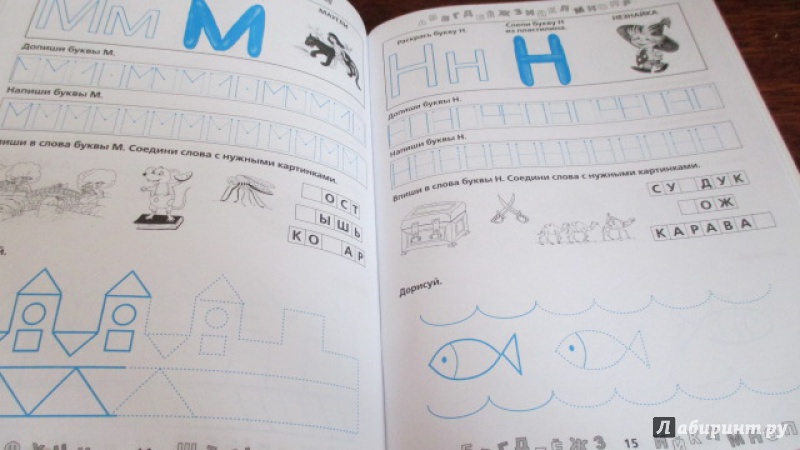 Мм М
МАУГЛИ
Допиши буквы М.
Напиши буквы М.
пиши в слова буквы М. Соедини слова с нужными картинками.
ОСТ
ЫШЬ
КО АР
й.
АБВГДЕЁЖЗИЙКЛМНОПР
Раскрась букву Н.
Слепи букву Н
из пластилина.
НЕЗНАЙКА
Нн Н
Допиши буквы Н.
Напиши буквы Н.
Впиши в слова буквы Н. Соедини слова с нужными картинками.
СУ ДУК
ОЖ
КАРАВА
Дорисуй.
15
Лабиринт.ру